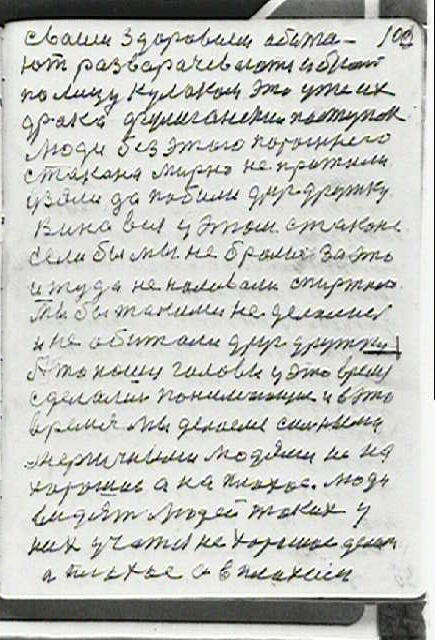 сваим здоровьем абита- 109
ют разварачевают и бют
по лицу кулаком это уже их
драка фулиганский поступок
люди без этого порожнего
стакана мирно не прожили
узяли да побили друг дружку
Вина вся у этом стакане
если бы мы не брали за это
и туда не наливали спиртного
мы бы такими не делались
и не обитали друг дружку
А то нашу галовы у это время
сделали понимающие и в это
время мы делаемся сильными
энергичными людями но не на
хорошае а на плохое. Люди
видят людей таких у
них учатся не хорошое делать
а плохое а в плохом